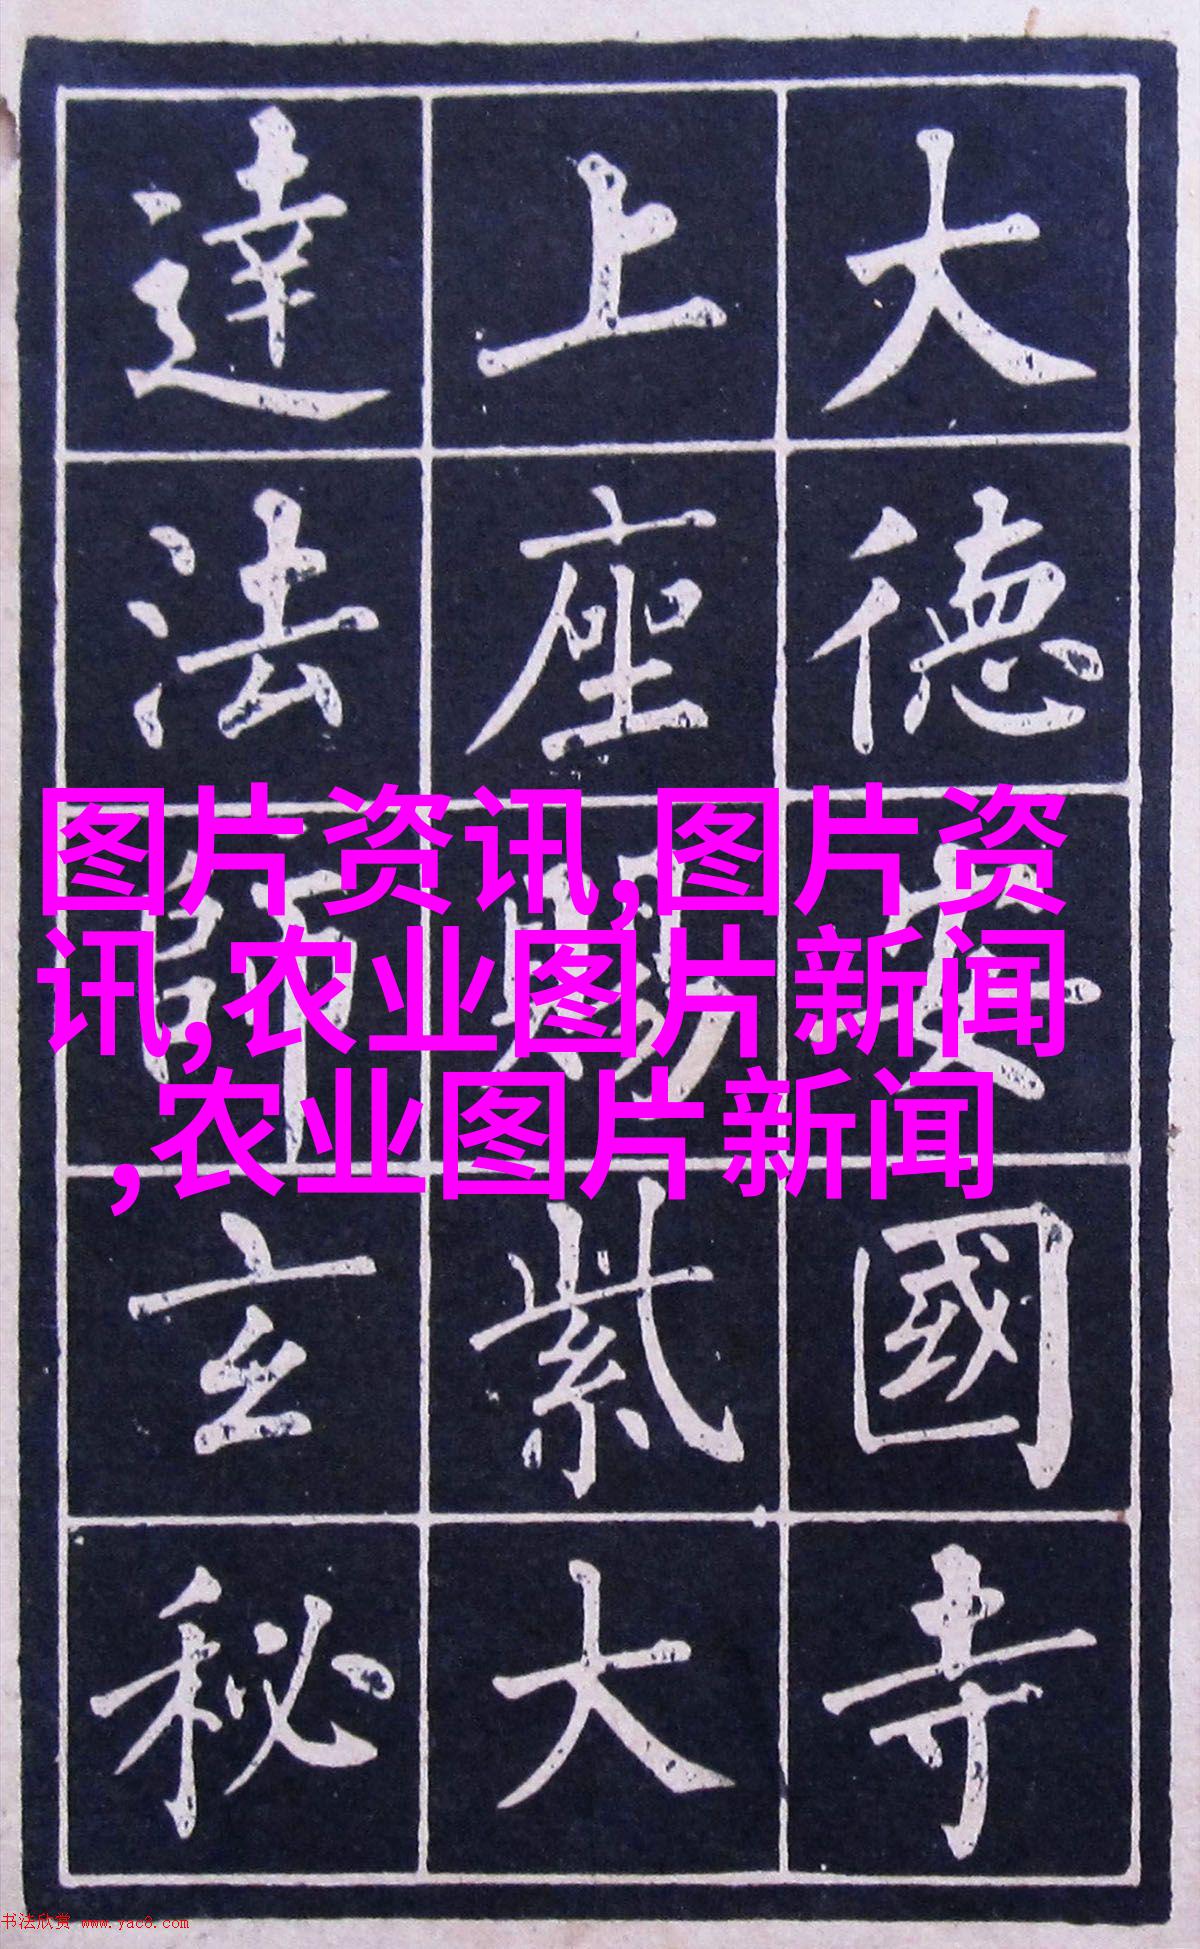 大德安國寺
上座賜紫大
達法師玄秘
图片资讯,图片资
讯,农业图片新闻
,农业图片新闻
书法欣赏 www.yac8.com